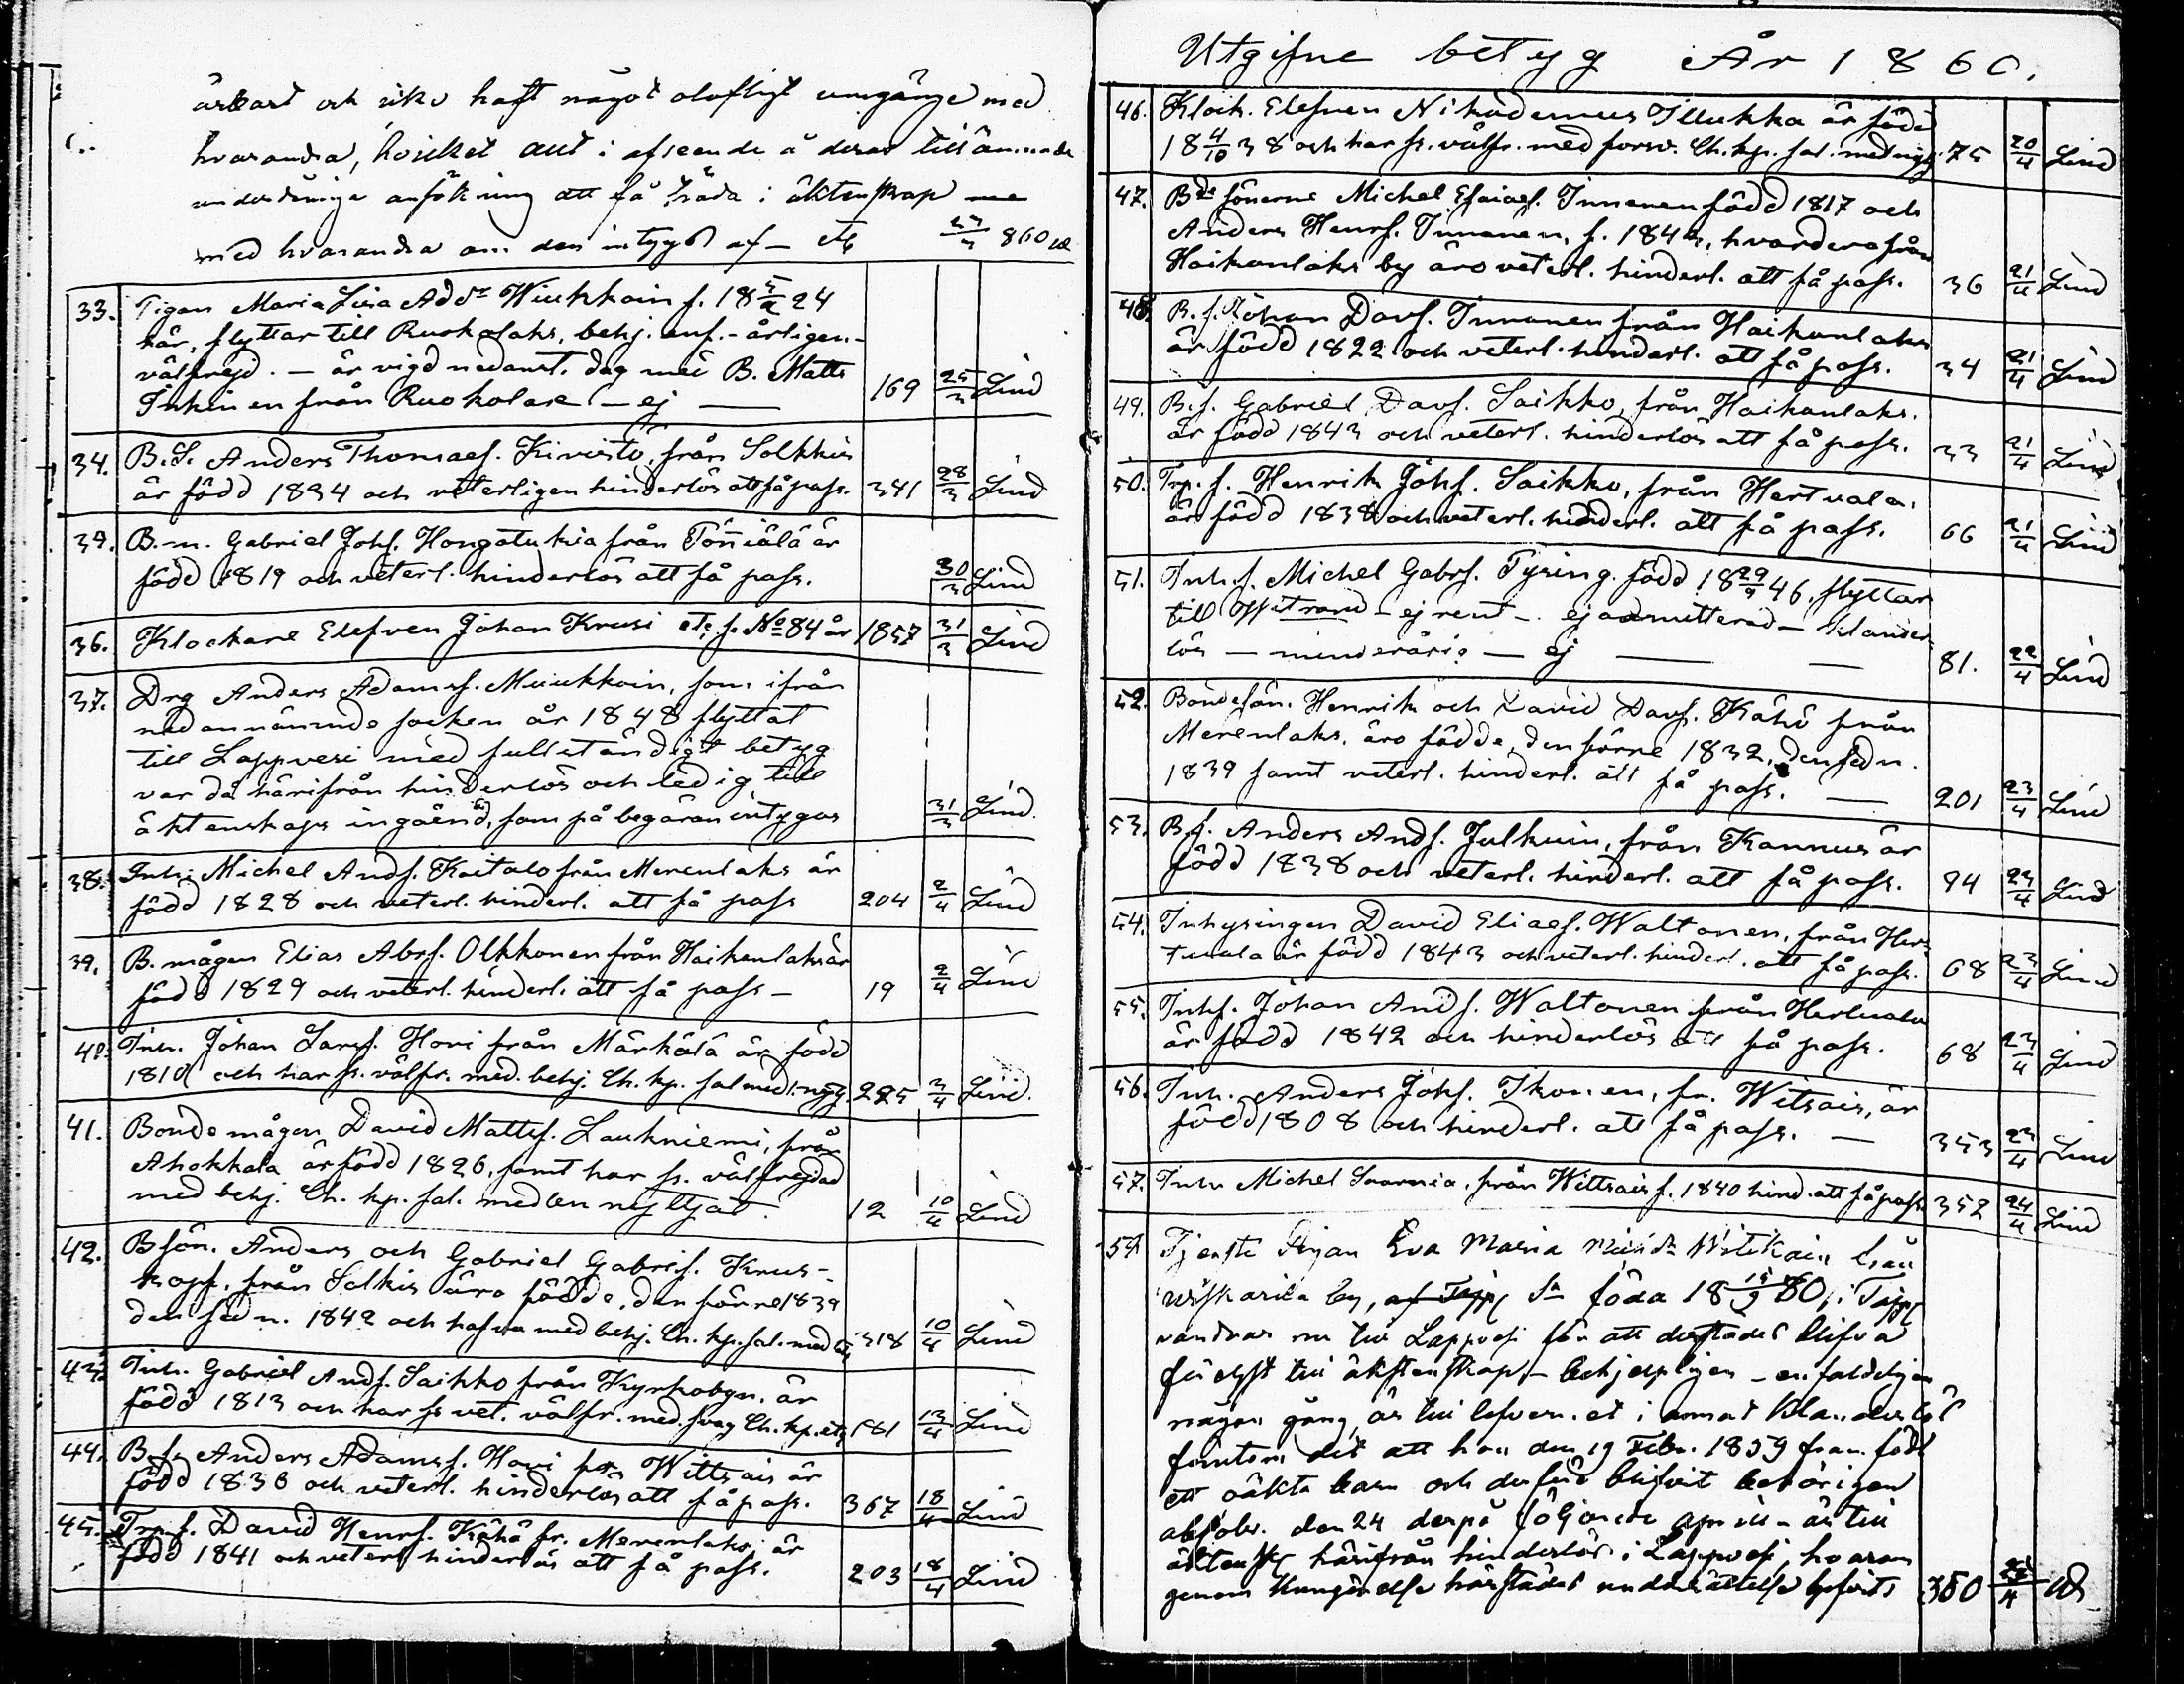 ärbart och icke haft något olofligt umgänge med
hvarandra, hvilket allt i afseende å deras tillämnade
underdåniga ansökning att få träda i äktenskap
med hvarandra om den intygas af – etc 860
33. Pigan Maria Lisa Add:r Wiukkain f. 18 24
här, flyttar till Ruokolaks, behj. enf. - årligen -
välfrejd. — är vigd nedanst. dag med B. Matts
Inkinen från Ruokolaks — ej — 169 25/3 Lind
34. B.S. Anders Thomaes. Kivistö, från Solkkis
är född 1834 och veterligen hinderlös att få pass. 341 28/3 Lind
35. B. m. Gabriel Johs. Hongatukia från Tönniälä är
född 1819 och veterl. hinderlös att få pass. 30/3 Lind
36. Klockare Elefven Johan Krusi etc f. No 84 år 1857 31/3 Lind
37. Drg Anders Adamsf. Muukkoin, som ifrån
nedannämnde socken år 1848 flyttat
till Lappvesi med fullständigt betyg
var då härifrån hinderlös och ledig till
äktenskaps ingående, som på begäran intygas 31/3 Lind.
38. Inh. Michel Andf. Kaitalo från Merenlaks är
född 1828 och veterl. hinderl. att få pass 204 2/4 Lind
39. B. mågen Elias Abrf. Olkkonen från Haikanlaks är
född 1829 och veterl. hinderl. att få pass – 19 2/4 Lind
40. Inh. Johan Larsf. Hovi från Märkälä är född
1810 och har fr. välfr. med. behj. Ch. kp. sal. med. 225 3/4 Lind.
41. Bonde mågen David Mattsf. Laukniemi, från
Ahokkala är född 1826, samt har fr. välfrejdad
med behj. Ch. kp. sal. medlen nyttjat. 12 10/4 Lind
42. B sön. Anders och Gabriel Gabrief. Krus-
kopf. från Solkis äro födde, den förre 1839
den sedn. 1842 och hafva med behj. Ch. kp. sal. med 318 10/4 Lind
43. Inh. Gabriel Andf. Saikko från Kyrkobyn. är
född 1813 och har fr vet. välfr. med. svag Ch. kp. etc 181 13/4 Lind
44. B. s. Anders Adamsf. Hovi fr. Wittsais är
född 1838 och veterl. hinderlös att få pass. 367 18/4 Lind
45. Trp. f. David Henrf. Kähä fr. Merenlaks, är
född 1841 och veterl hinderlös att få pass. 203 18/4 Lind
Utgifne betyg År 1860.
46. Klock. Elefven Nikodemus Illukka är född
18 4/10 38 och har fr. välfr. med forsv. Ch. kp. sal. med nyg. 75 20/4 Lind
47. Bde sönerne Michel Esaiaef. Innanen född 1817 och
Anders Henrf. Innanen, f. 1843, hvardera från
Haikanlaks by äro veterl. hinderl. att få pass. 36 21/4 Lind
48. B. f. Johan Davf. Innanen från Haikanlaks
är född 1822 och veterl. hinderl. att få pass. 34 21/4 Lind
49. B. f. Gabriel Davf. Saikko, från Haikanlaks.
är född 1843 och veterl. hinderlös att få pass. 33 21/4 Lind
50. Trp. f. Henrik Johf. Saikko, från Hertuala.
är född 1838 och veterl. hinderl. att få pass. 66 21/4 Lind
51. Inh. f. Michel Gabrf. Tysing. född 18 29/9 46, flyttar
till Witrand – ej rent – ej admitterad – klander-
lös — minderårig — ej — 81. 22/4 Lind
52. Bondesön. Henrik och David Davf. Kähö från
Merenlaks. äro födde, den förre 1832, den sedn.
1839 samt veterl. hinderl. att få pass. — 201 23/4 Lind
53. B. f. Anders Andf. Julkuin, från Kannus är
född 1838 och veterl. hinderl. att få pass. 94 23/4 Lind
54. Inhysingen David Eliaef. Waltonen, från Her-
tuala är född 1843 och veterl. hinderl. att få pass. 68 23/4 Lind
55. Inhf. Johan Andf. Waltonen från Hertuala
är född 1842 och hinderlös att få pass. 68 23/4 Lind
56. Inh. Anders Johf. Ikonen, fr. Witsais, är
född 1808 och hinderl. att få pass. — 353 23/4 Lind
57. Inh. Michel Suarnia, från Wittsais f. 1840 hind. att få pass 352 24/4 Lind
58 Tjenste Pigan Eva Maria Witikain från
by, föda 18 i
vandrar nu till Lappvesi för att derstädes blifva
fäst till äktenskap – behjelpligen – enfaldeligen
någon gång, är till lefvern. et i annat klanderlös
förutom det att hon den 19 Febr. 1859 fram födt
ett oäkta barn och derföre blifvit behörigen
absolv. den 24 derpå följande april – är till
äktensk härifrån hinderlös i Lappvesi, hvarom
genom kungörelse härstädes underrättelse 350 /4